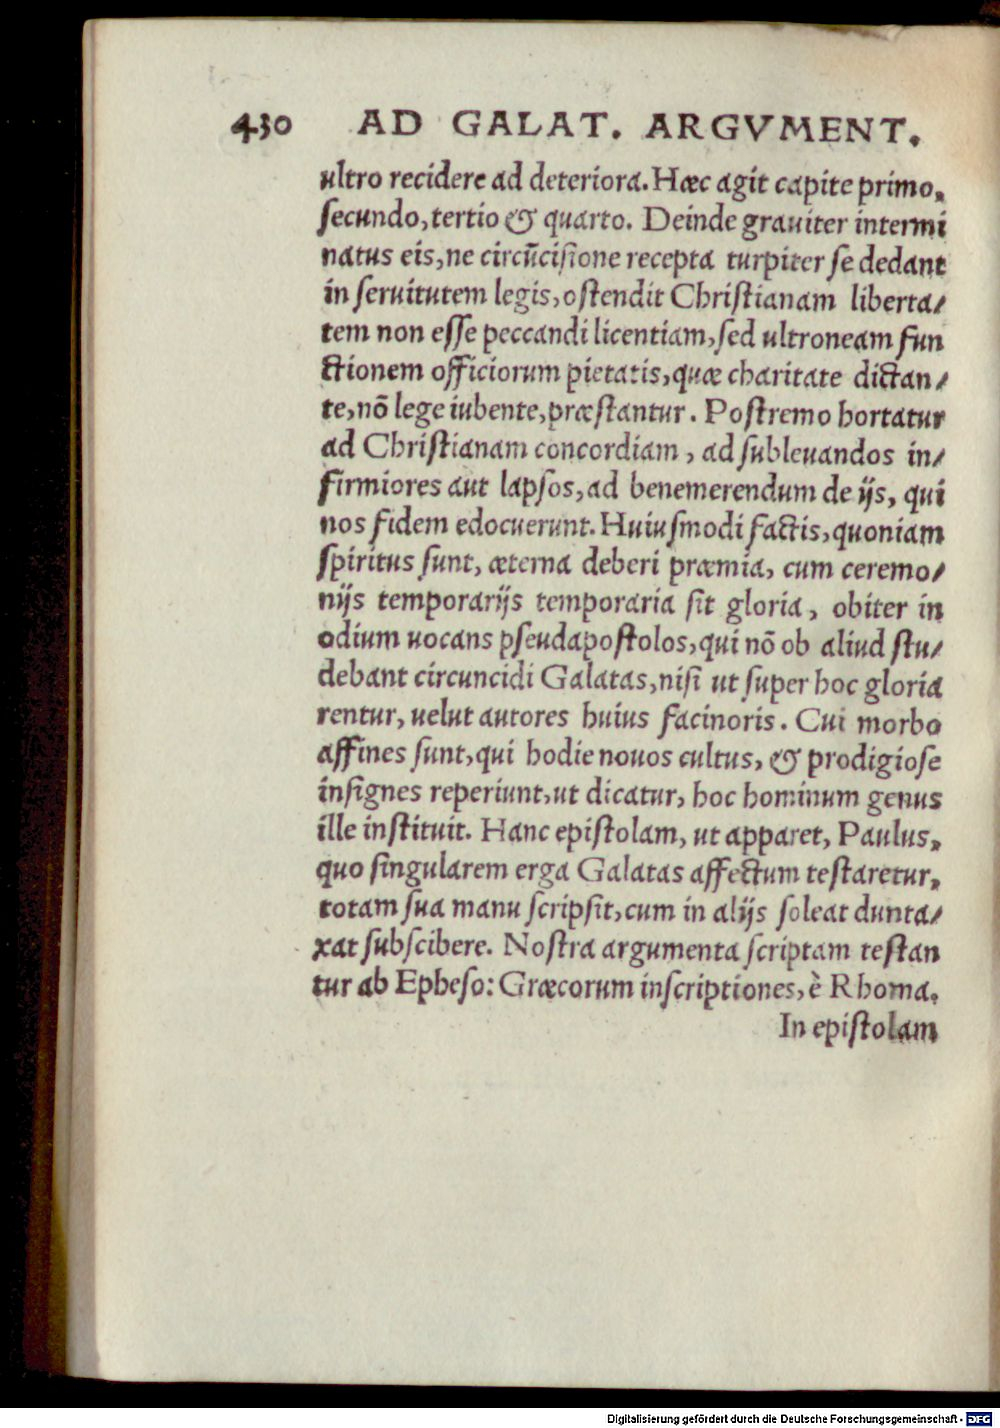 430 AD GALAT. ARGVMENT.
ultro recidere ad deteriora. Hæc agit capite primo,
secundo, tertio & quarto. Deinde grauiter intermi
natus eis, ne circũcisione recepta turpiter se dedant
in seruitutem legis, ostendit Christianam liberta/
tem non esse peccandi licentiam, sed ultroneam fun
ctionem officiorum pietatis, quæ charitate dictan/
te, nõ lege iubente, præstantur. Postremo hortatur
ad Christianam concordiam, ad subleuandos in/
firmiores aut lapsos, ad benemerendum de ijs, qui
nos fidem edocuerunt. Huiusmodi factis, quoniam
spiritus sunt, æterna deberi præmia, cum ceremo/
nijs temporarijs temporaria sit gloria, obiter in
odium uocans pseudapostolos, qui nõ ob aliud stu/
debant circuncidi Galatas, nisi ut super hoc gloria
rentur, uelut autores huius facinoris. Cui morbo
affines sunt, qui hodie nouos cultus, & prodigiose
insignes reperiunt, ut dicatur, hoc hominum genus
ille instituit. Hanc epistolam, ut apparet, Paulus,
quo singularem erga Galatas affectum testaretur,
totam sua manu scripsit, cum in alijs soleat dunta/
xat subscibere. Nostra argumenta scriptam testan
tur ab Epheso: Græcorum inscriptiones, è Rhoma.
In epistolam
Digitalisierung gefördert durch die Deutsche Forschungsgemeinschaft - DFG